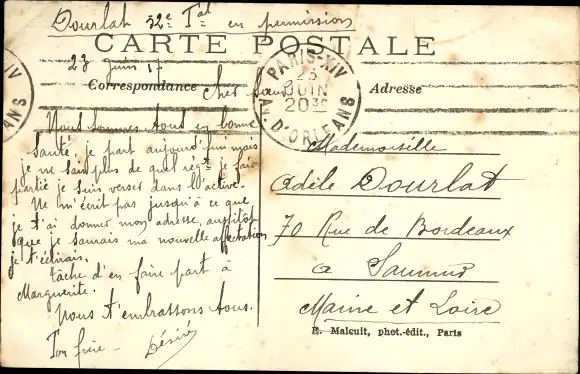 Dourlat 32e Tal en permission
CARTE POSTALE
23 juin 17
Correspondance
Adresse
PARIS-XIV
23
JUIN
2030
AV. D'ORLEANS
Cher Sœur
Nous sommes tous en bonne
santé, je part aujourd'hui mais
je ne sais plus de quel régt je fais
partie je suis verser dans l'active.
Ne m'écrit pas jusqu'à ce que
je t'ai donner mon adresse, aussitôt
que je saurais ma nouvelle affectation
je t'écrirais.
tâche d'en faire part à
Marguerite.
Nous t'embrassons tous.
Ton frère - Désiré
Mademoiselle
Adèle Dourlat
70 Rue de Bordeaux
a Saumur
Maine et Loire
E. Malcuit, phot.-édit., Paris